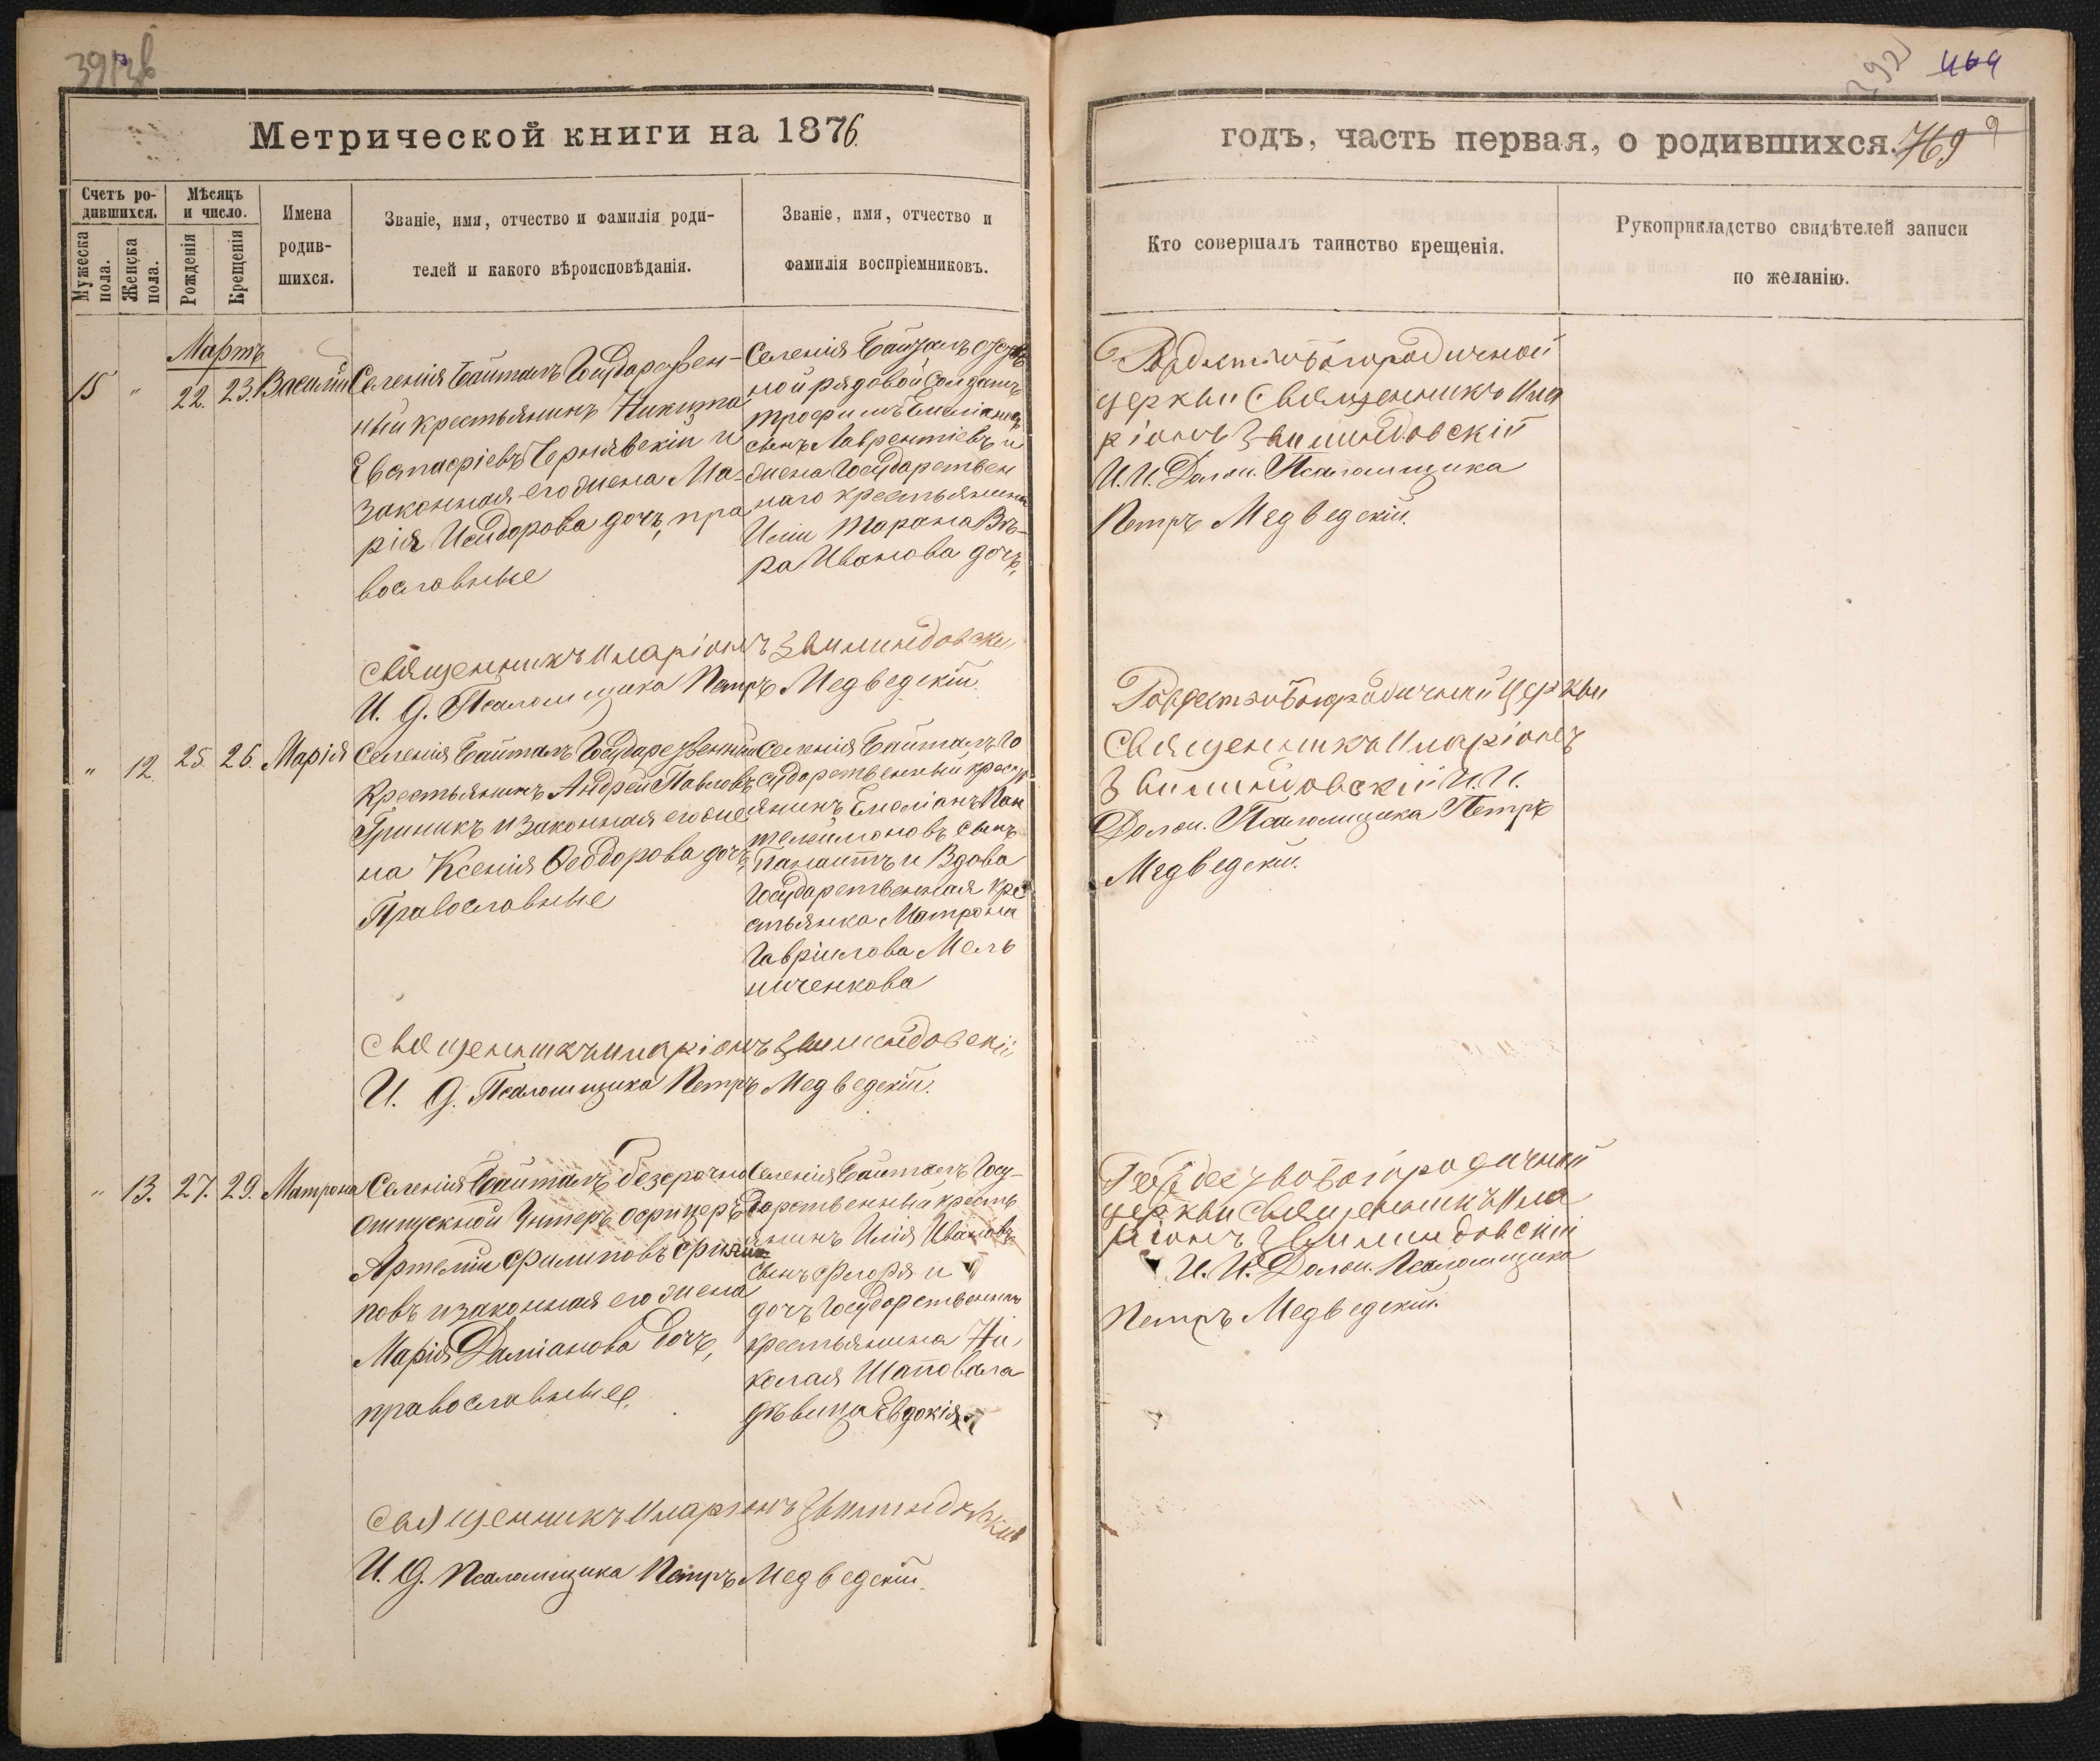 391 зв
Метрической книги на 1876.
Счетъ ро-
дившихся.
Мѣсяцъ
и число.
Мужеска
пола.
Женска
пола.
Рожденія
Крещенія
Имена
родив-
шихся.
Званіе, имя, отчество и фамилія роди-
телей и какого вѣроисповѣданія.
Званіе, имя, отчество и
фамилія воспріемниковъ.
Мартъ
15 " 22. 23. Василій
Селенія Байталъ Государствен-
ный крестьянинъ Никита
Евстафіевъ Чернявскій и
законная его жена Ма-
рія Исидорова дочь, пра
вославные
Селенія Байталъ
ной рядовой Солдатъ
Трофимъ Емеліановъ
сынъ Лаврентіевъ и
жена Государствен
наго крестьянина
Иліи Тарана Вѣ-
ра Иванова дочь,
Священникъ Иларіонъ
И. Д. Псаломщика Петръ Медведскій.
" 12. 25. 26. Марія
Селенія Байталъ Государственный
Крестьянинъ Андрей Павловъ
Гриникъ и законная его же
на Ксенія Ѳеодорова дочь,
Православные
Селенія Байталъ Го
сударственный крест
янинъ Емеліанъ Пан
телеймоновъ сынъ
и Вдова
Государственная кре
стьянка Матрона
Гавріилова Мель
ниченкова
Священникъ Иларіонъ
И. Д. Псаломщика Петръ Медведскій.
" 13. 27. 29. Матрона
Селенія Байталъ безсрочно
отпускной Унтеръ офицеръ
Артемій Филиповъ Фили
повъ и законная его жена
Марія Даміанова дочь,
православные.
Селенія Байталъ Госу-
дарственный кресть
янинъ Илія Ивановъ
сынъ Флоря и
дочь Государственнаго
крестьянина Ни
колая Шаповала
дѣвица Евдокія
Священникъ Иларіонъ
И. Д. Псаломщика Петръ Медведскій.
392 464
годъ, часть первая, о родившихся. 769 9
Кто совершалъ таинство крещенія.
Рукоприкладство свидѣтелей записи
по желанію.
Рождество Богородичной
церкви Священникъ Ила
ріонъ
И. И. Долж. Псаломщика
Петръ Медведскій.
Рождество Богородичной Церкви
Священникъ Иларіонъ
И. И.
Долж. Псаломщика Петръ
Медведскій.
Рождество Богородичной
церкви Священникъ Ила
ріонъ
И. И. Долж. Псаломщика
Петръ Медведскій.